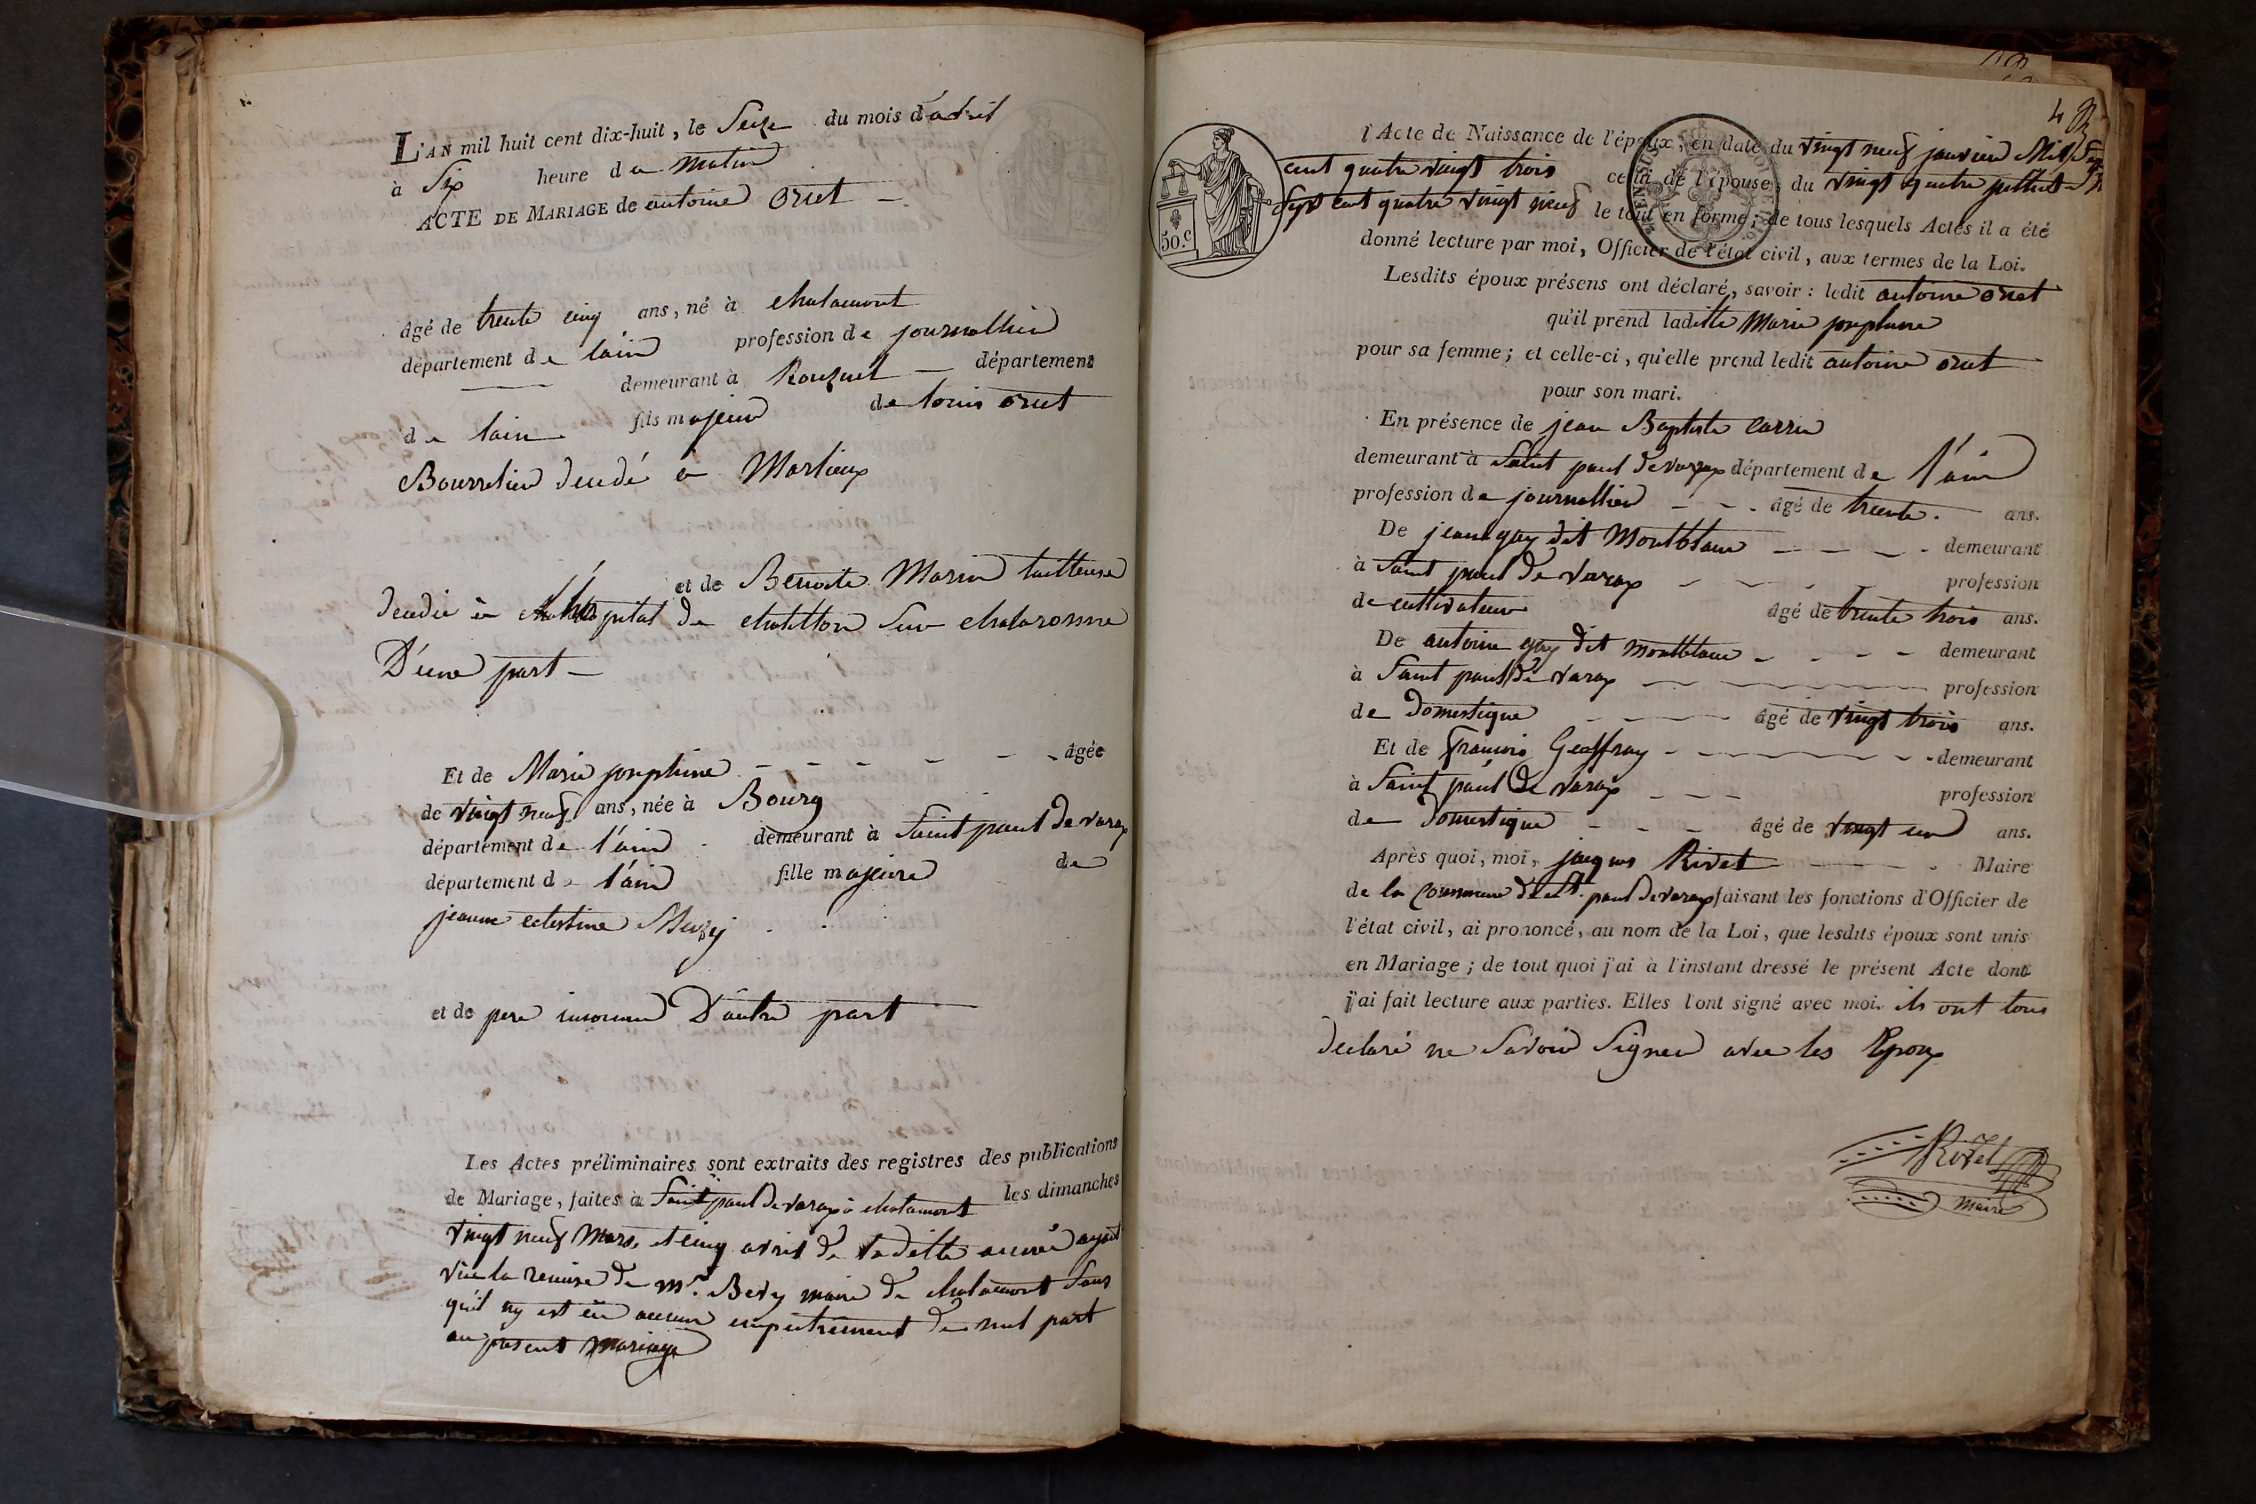 L'AN mil huit cent dix-huit, le Seize du mois d'avril
à Six heure du matin
ACTE DE MARIAGE de antoine oriet
âgé de trente cinq ans, né à chalamont
département de lain profession de journallier
demeurant à département
de lain fils majeur de louis oriet
Bourrelier decédé a Marlieux
et de Benoite Marin tailleuse
decedée à hopital de chatillon Sur chalaronne
D'une part
Et de Marie josephine âgée
de vingt neuf ans, née à Bourg
département de l'ain demeurant à Saint paul de varax
département de l'ain fille majeure de
jeanne celestine
et de pere inconnu D'autre part
Les Actes préliminaires sont extraits des registres des publications
de Mariage, faites à Saint paul de varax à chalamont les dimanches
vingt neuf Mars et cinq avril de ladite année ayant
vue la remise de mr. Bevy maire de chalamont Sans
qu'il ny est eu aucun empechement de nul part
au présent mariage
4
l'Acte de Naissance de l'époux, en date du vingt neuf janvier Mil Sept
cent quatre vingt trois celui de l'épouse, du vingt quatre juillet
Sept cent quatre vingt neuf le tout en forme; de tous lesquels Actes il a été
50.c
donné lecture par moi, Officier de l'état civil, aux termes de la Loi.
Lesdits époux présens ont déclaré, savoir: ledit antoine oriet
qu'il prend ladite Marie josephine
pour sa femme; et celle-ci, qu'elle prend ledit antoine oriet
pour son mari.
En présence de jean Baptiste carrie
demeurant à Saint paul de varax département de l'ain
profession de journallier âgé de trente ans.
De jean gay dit Montblanc demeurant
à Saint paul de varax profession
de cultivateur âgé de trente trois ans.
De antoine gay dit montblanc demeurant
à Saint paul de varax profession
de Domestique âgé de vingt trois ans.
Et de françois Geoffray demeurant
à Saint paul de varax profession
de Domestique âgé de vingt un ans.
Après quoi, moi, jaques Rivet Maire
de la commune de St. paul de varax faisant les fonctions d'Officier de
l'état civil, ai prononcé, au nom de la Loi, que lesdits époux sont unis
en Mariage; de tout quoi j'ai à l'instant dressé le présent Acte dont
j'ai fait lecture aux parties. Elles l'ont signé avec moi. ils ont tous
declaré ne Savoir Signer avec les Epoux
Rivet
maire